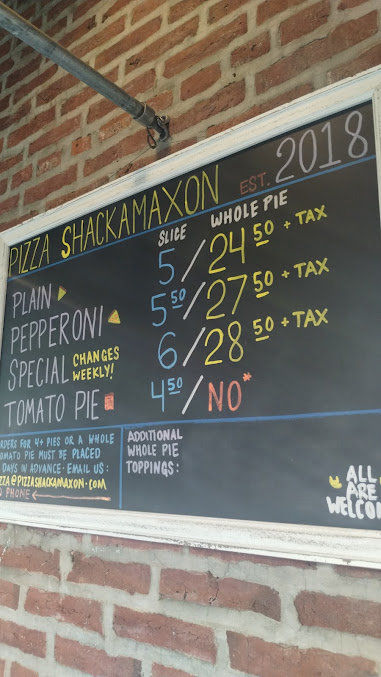 PIZZA SHACKAMAXON EST. 2018
SLICE WHOLE PIE
PLAIN 5 / 24 50 + TAX
PEPPERONI 5 50 / 27 50 + TAX
SPECIAL CHANGES WEEKLY! 6 / 28 50 + TAX
TOMATO PIE 4 50 / NO*
RDERS FOR 4+ PIES OR A WHOLE
OMATO PIE MUST BE PLACED
DAYS IN ADVANCE: EMAIL US:
ZZA@PIZZASHACKAMAXON.COM
O PHONE
ADDITIONAL
WHOLE PIE
TOPPINGS:
ALL
ARE
WELCOM